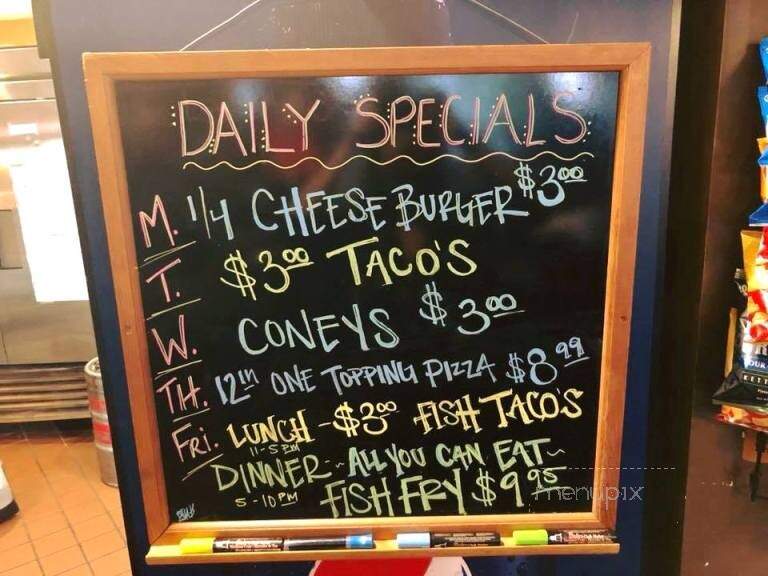 DAILY SPECIALS
M. 1/4 CHEESE BURGER $3.00
T. $3.00 TACO'S
W. CONEYS $3.00
TH. 12in ONE TOPPING PIZZA $8.99
FRI. LUNCH - $3.00 FISH TACO'S
11-5 PM
DINNER ~ ALL YOU CAN EAT ~
5-10 PM FISH FRY $9.95
menupix